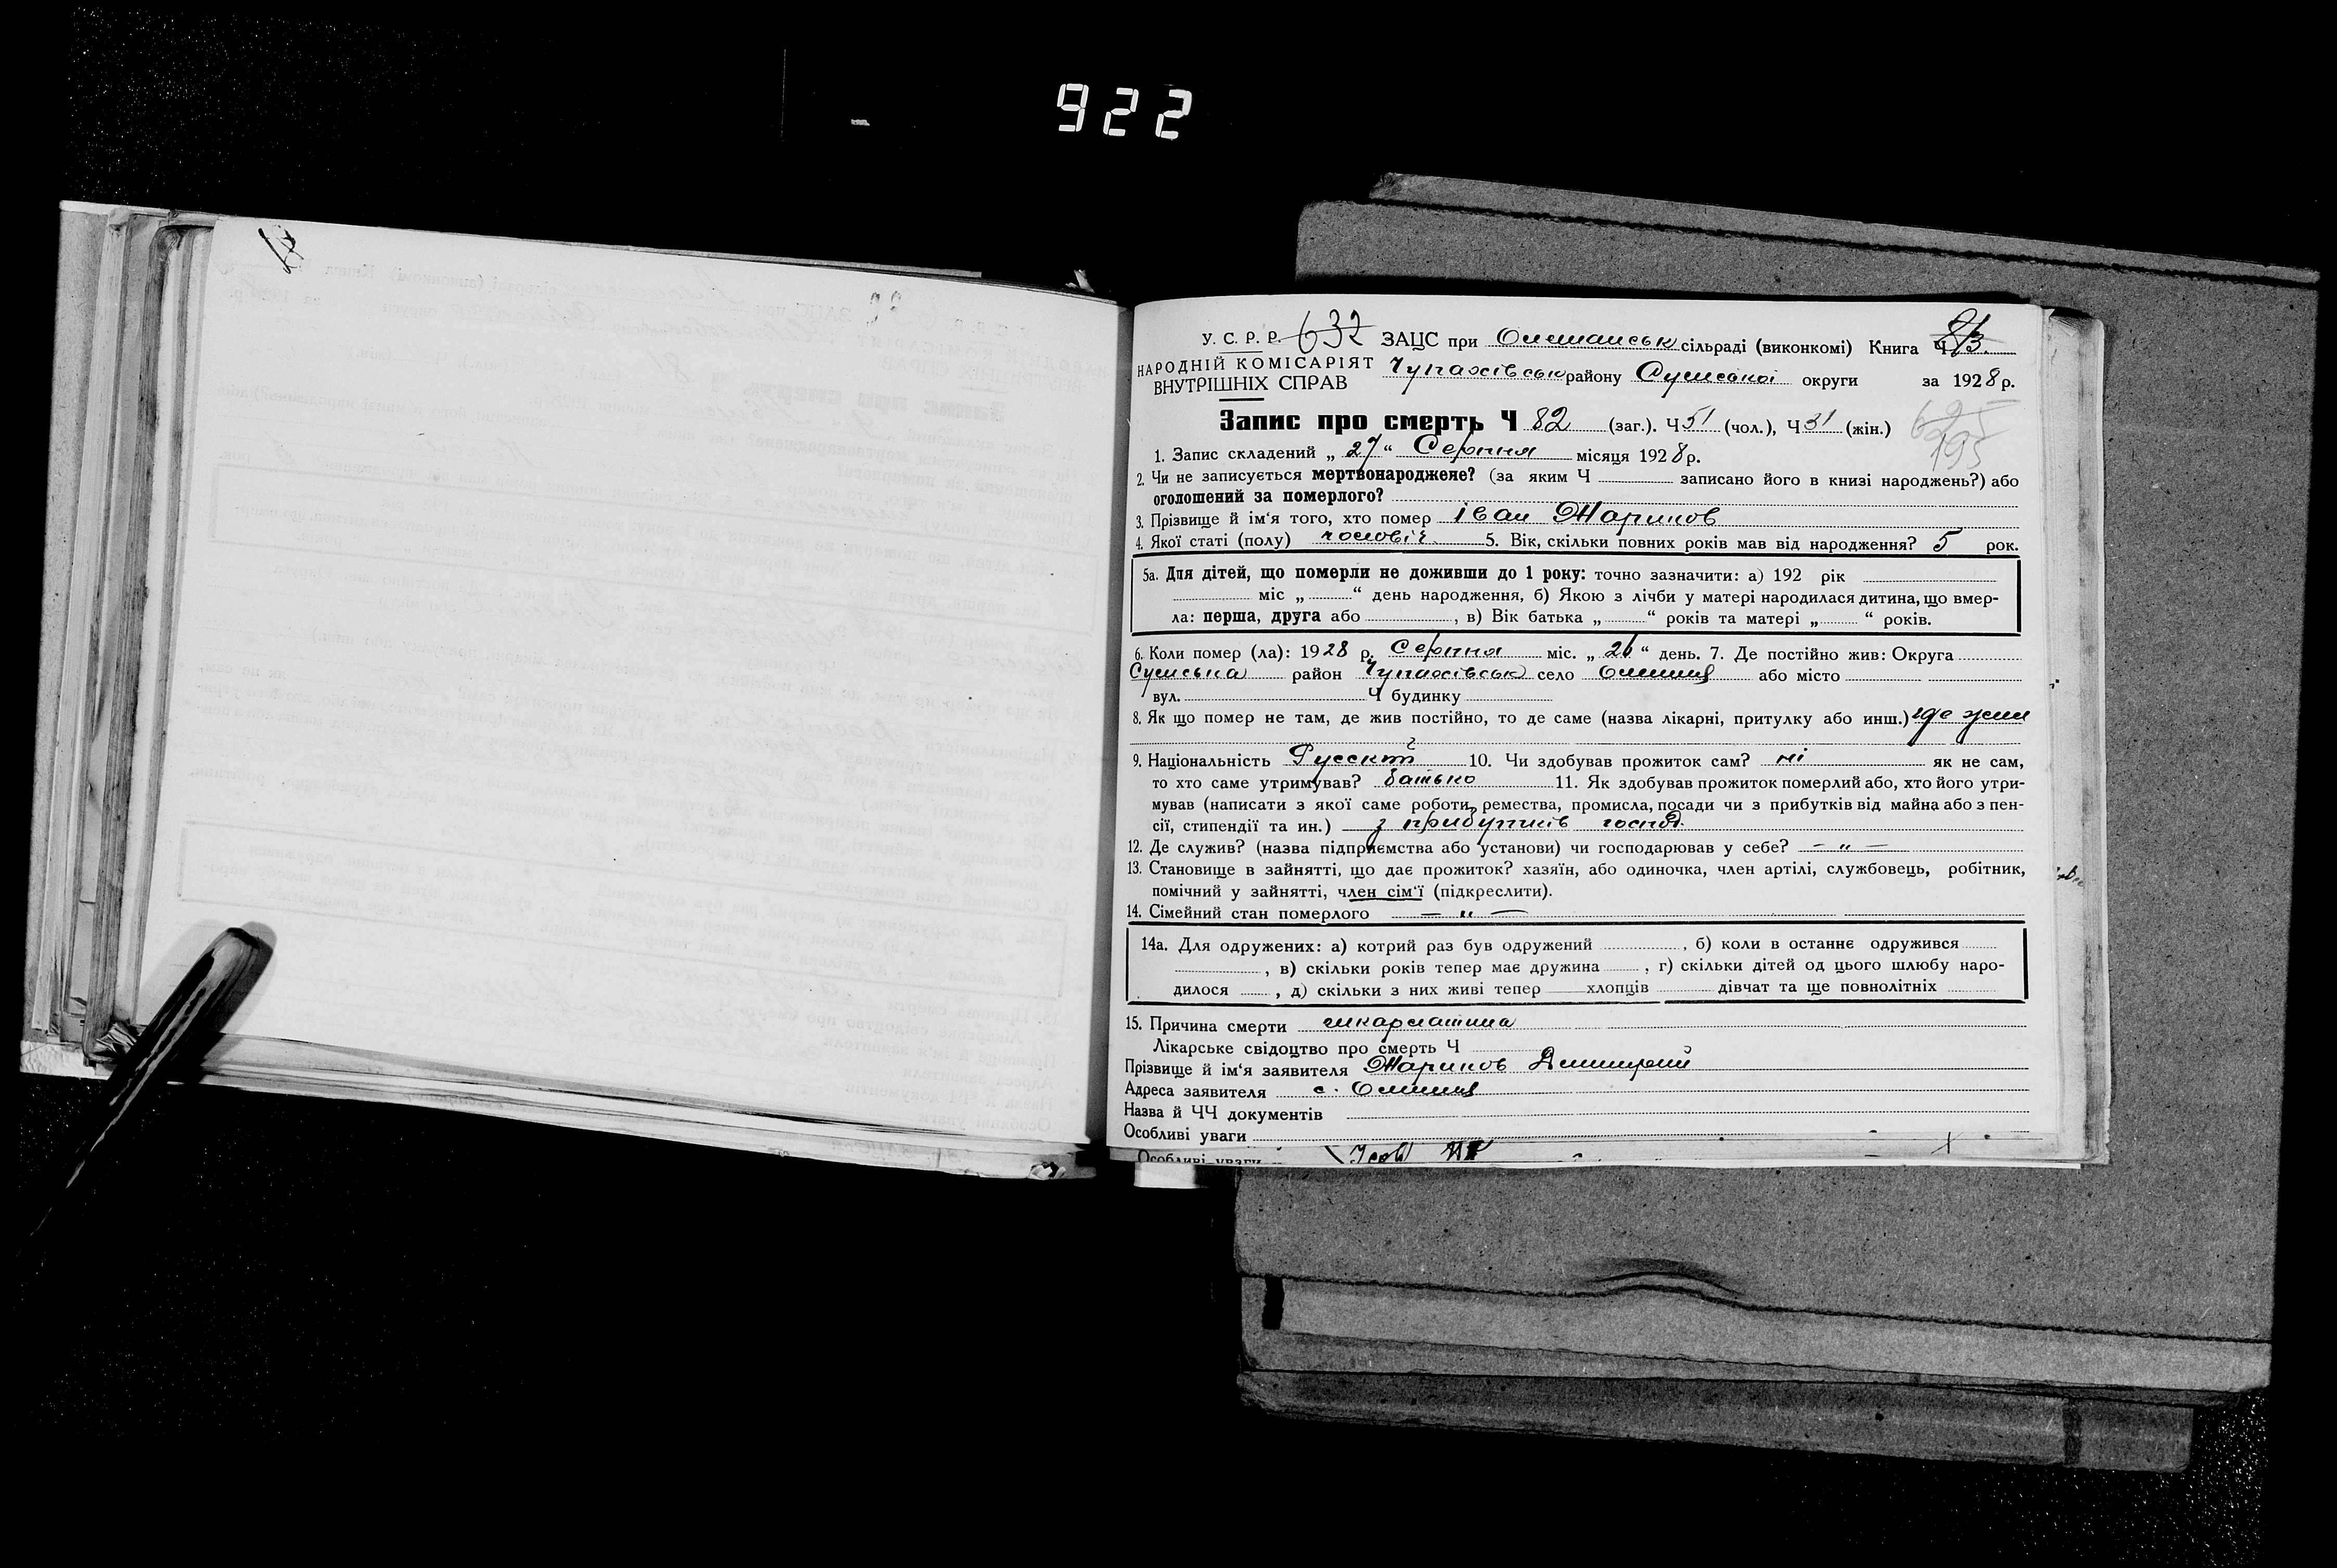 922
У. С. Р. Р. 632 ЗАЦС при Олешанськ сільраді (виконкомі) Книга Ч
НАРОДНІЙ КОМІСАРІЯТ
ВНУТРІШНІХ СПРАВ
Чупахівськ району Сумської округи за 1928 р.
Запис про смерть Ч 82 (заг.). Ч 51 (чол.), Ч 31 (жін.)
195
1. Запис складений „ 27 “ Серпня місяця 1928 р.
2. Чи не записується мертвонароджене? (за яким Ч записано його в книзі народжень?) або
оголошений за померлого?
3. Прізвище й ім'я того, хто помер Іван Жаринов
4. Якої статі (полу) чоловіч. 5. Вік, скільки повних років мав від народження? 5 рок.
5а. Для дітей, що померли не доживши до 1 року: точно зазначити: а) 192 рік
міс „ “ день народження, б) Якою з лічби у матері народилася дитина, що вмер-
ла: перша, друга або , в) Вік батька „ “ років та матері „ “ років.
6. Коли помер (ла): 1928 р. Серпня міс. „ 26 “ день. 7. Де постійно жив: Округа
Сумська район Чупахівськ село або місто
вул. Ч будинку
8. Як що помер не там, де жив постійно, то де саме (назва лікарні, притулку або инш.) где жил
9. Національність 10. Чи здобував прожиток сам? ні як не сам,
то хто саме утримував? батько 11. Як здобував прожиток померлий або, хто його утри-
мував (написати з якої саме роботи, ремества, промисла, посади чи з прибутків від майна або з пен-
сії, стипендії та ин.) з прибутків господ.
12. Де служив? (назва підприємства або установи) чи господарював у себе? — „ —
13. Становище в зайнятті, що дає прожиток? хазяїн, або одиночка, член артілі, службовець, робітник,
помічний у зайнятті, член сім'ї (підкреслити).
14. Сімейний стан померлого — „ —
14а. Для одружених: а) котрий раз був одружений , б) коли в останнє одружився
, в) скільки років тепер має дружина , г) скільки дітей од цього шлюбу наро-
дилося , д) скільки з них живі тепер хлопців дівчат та ще повнолітніх
15. Причина смерти шкарлатина
Лікарське свідоцтво про смерть Ч
Прізвище й ім'я заявителя Жаринов Дмитрий
Адреса заявителя с.
Назва й ЧЧ документів
Особливі уваги
Особливі уваги